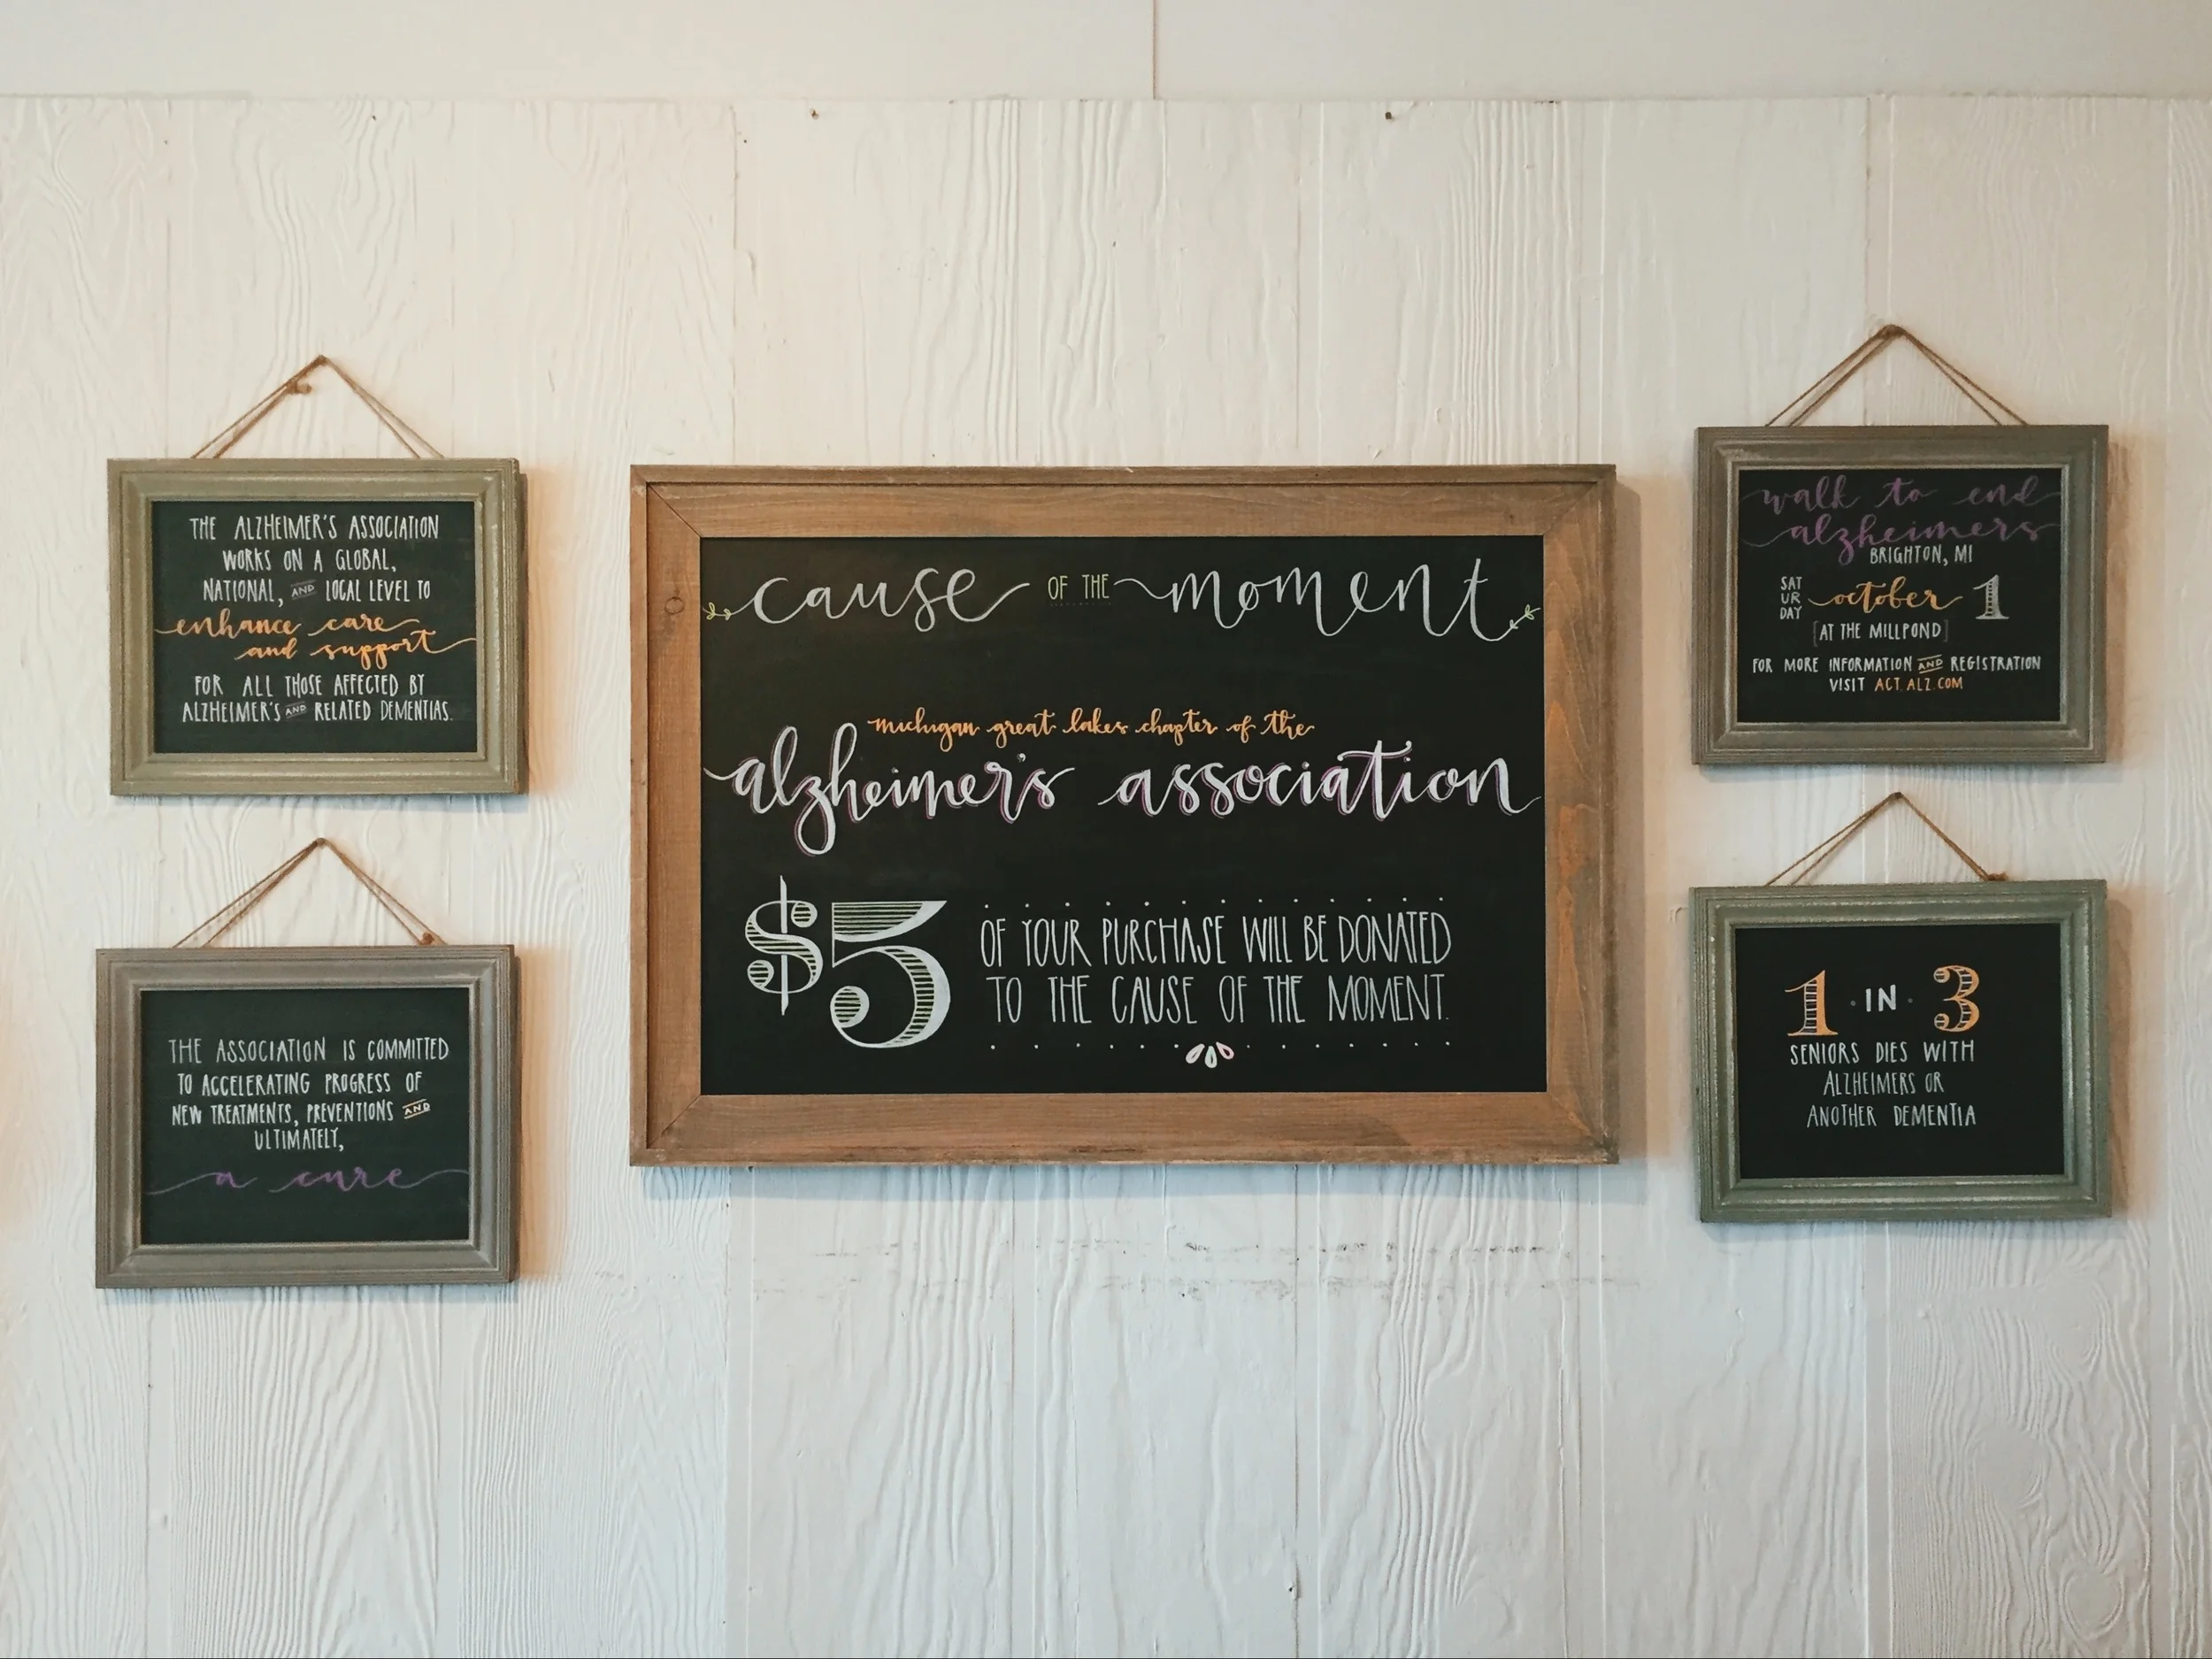 THE ALZHEIMER'S ASSOCIATION
WORKS ON A GLOBAL,
NATIONAL, AND LOCAL LEVEL TO
enhance care
and support
FOR ALL THOSE AFFECTED BY
ALZHEIMER'S AND RELATED DEMENTIAS.
THE ASSOCIATION IS COMMITTED
TO ACCELERATING PROGRESS OF
NEW TREATMENTS, PREVENTIONS AND
ULTIMATELY,
a cure
cause OF THE moment
michigan great lakes chapter of the
alzheimer's association
$5 OF YOUR PURCHASE WILL BE DONATED
TO THE CAUSE OF THE MOMENT.
walk to end
alzheimers
BRIGHTON, MI
SAT
UR
DAY
october 1
[AT THE MILLPOND]
FOR MORE INFORMATION AND REGISTRATION
VISIT ACT.ALZ.COM
1 · IN · 3
SENIORS DIES WITH
ALZHEIMERS OR
ANOTHER DEMENTIA